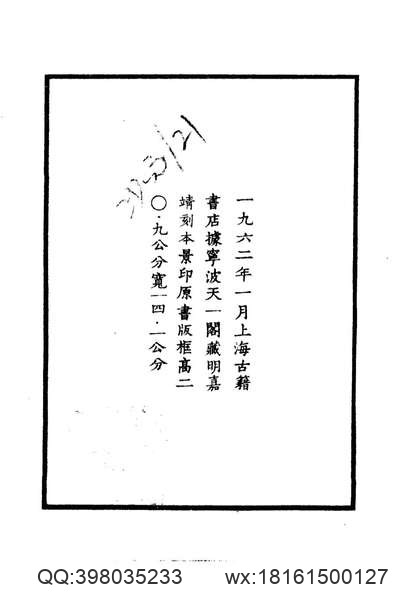 一九六二年一月上海古籍
書店據寧波天一閣藏明嘉
靖刻本景印原書版框高二
〇·九公分寬一四·一公分
QQ:398035233 wx:18161500127